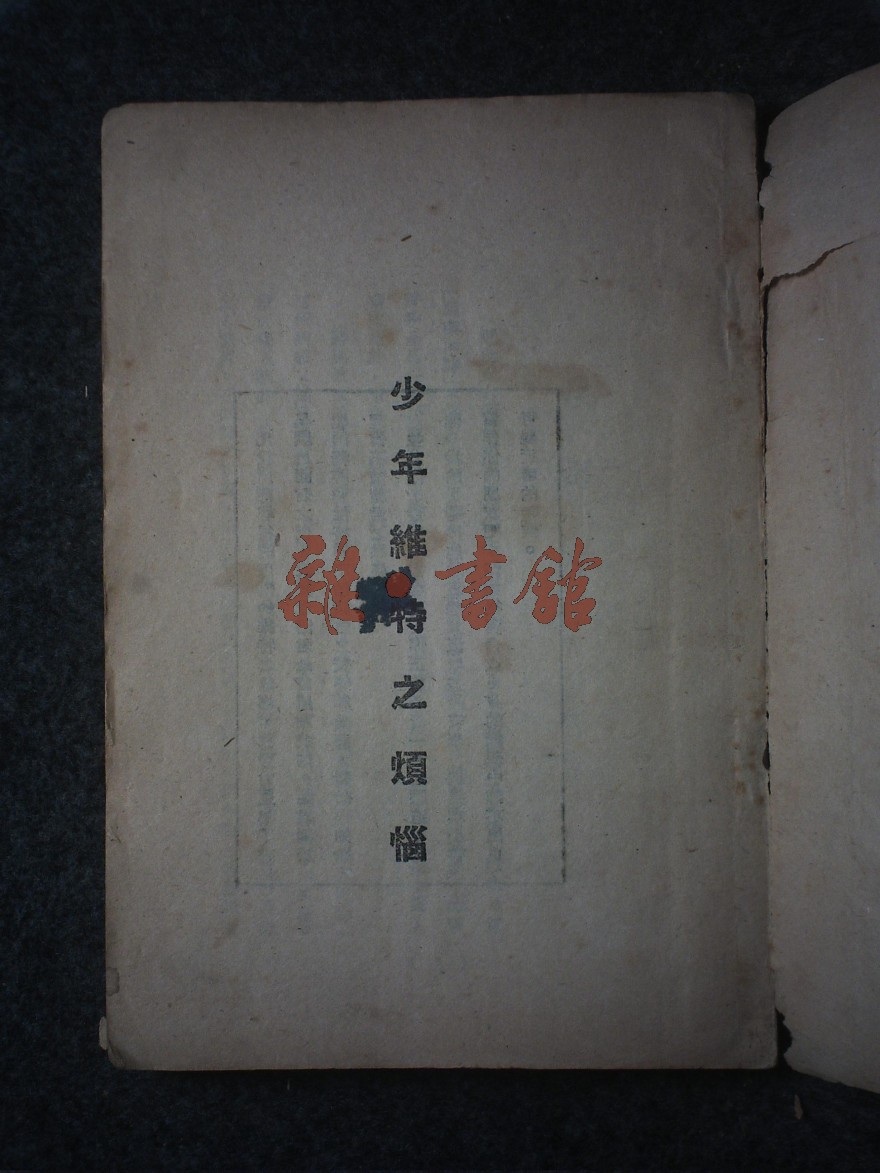 少年維特之煩惱
雜·書館